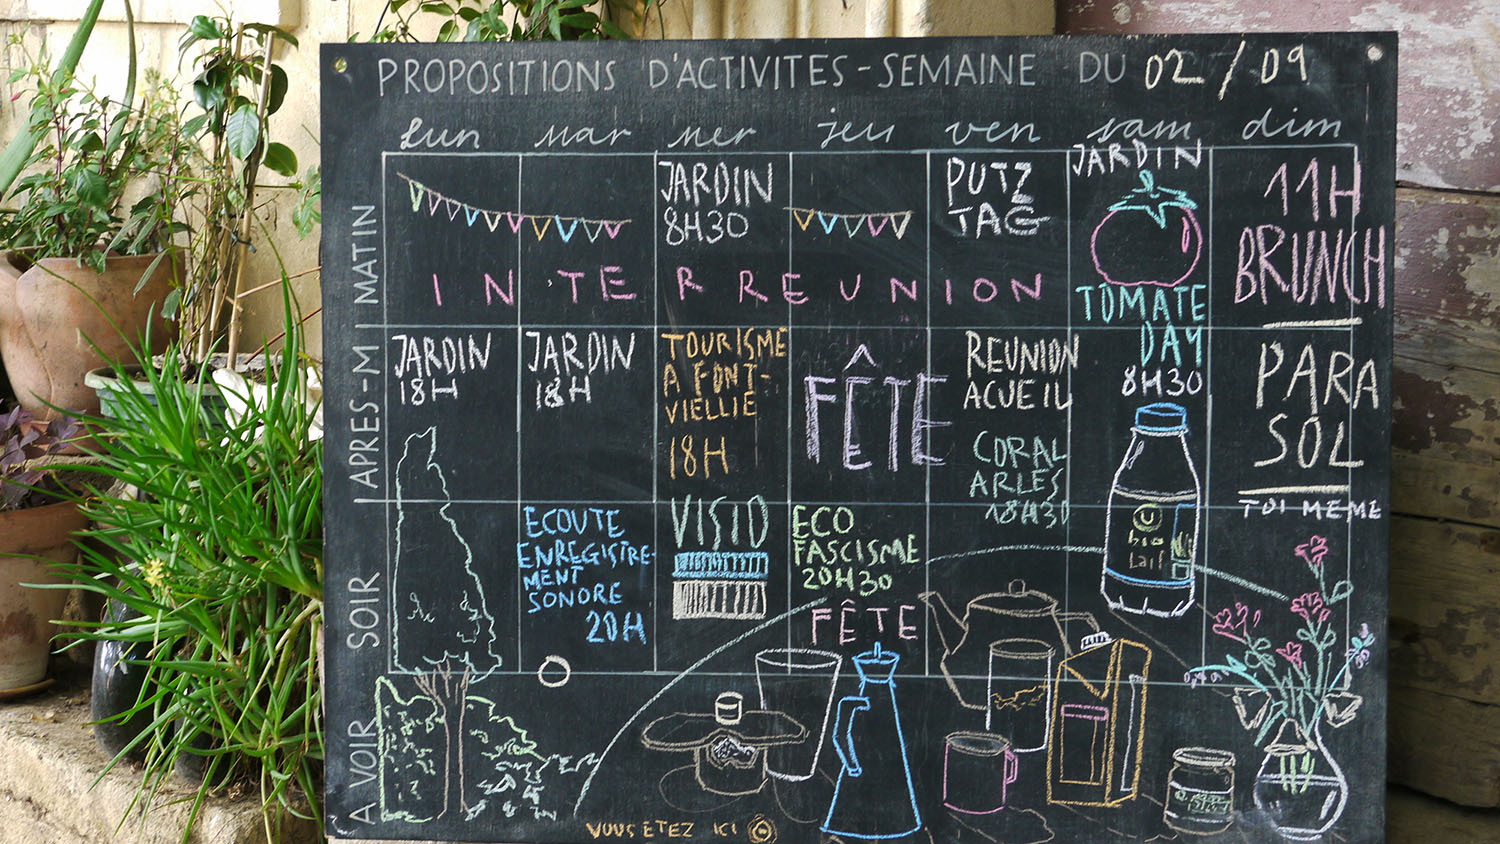 PROPOSITIONS D'ACTIVITES-SEMAINE DU 02/09
lun mar mer jeu ven sam dim
MATIN
JARDIN
8H30
PUTZ
TAG
JARDIN
TOMATE
DAY
8H30
11H
BRUNCH
INTERREUNION
APRES-M
JARDIN
18H
JARDIN
18H
TOURISME
A FONT-
VIELLIE
18H
FÊTE
REUNION
ACUEIL
CORAL
ARLES
18H30
PARA
SOL
TOI MEME
SOIR
ECOUTE
ENREGISTRE-
MENT
SONORE
20H
VISIO
ECO
FASCISME
20H30
FÊTE
U
bio
Lait
A VOIR
VOUS ETEZ ICI